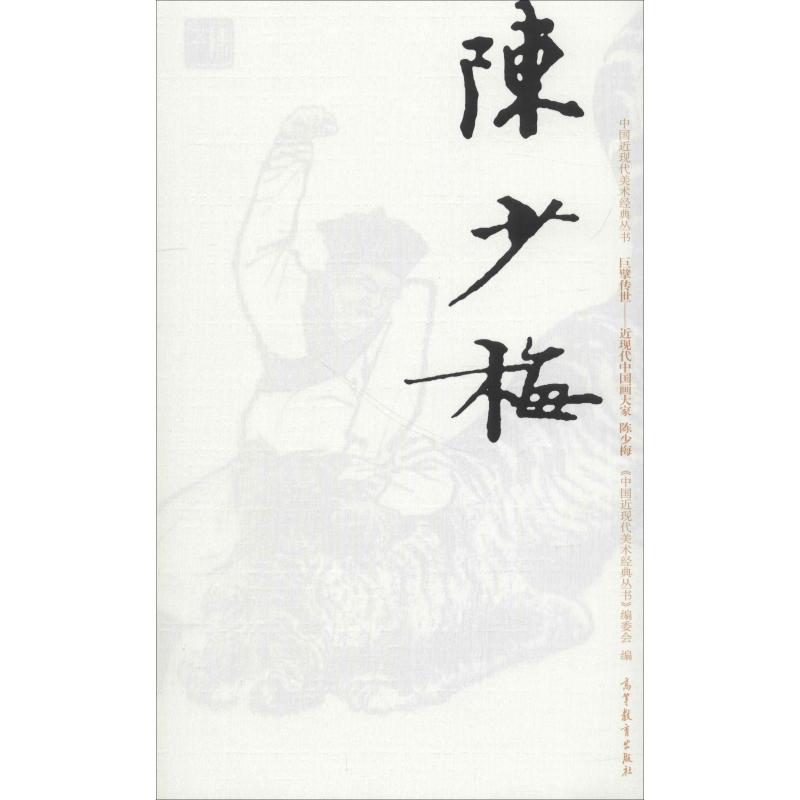 陳少梅
中国近现代美术经典丛书
巨擘传世——近现代中国画大家 陈少梅
《中国近现代美术经典丛书》编委会 编
高等教育出版社